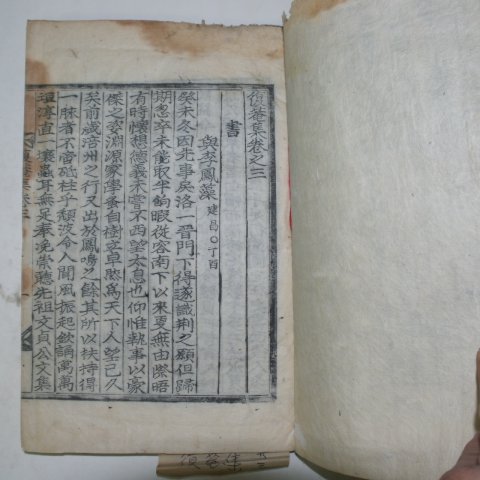 復菴集卷之三
書
與李鳳藻 建昌○丁酉
癸未冬因先事戾洛一晉門下得遂識荊之願但歸
期忽卒未能取半餉暇從容南下以來夏無由際晤
有時懷想德義未嘗不西望太息也仰惟執事以豪
傑之姿淵源家學蚤自樹立卓然爲天下人望已久
矣前歲涪州之行又出於鳳鳴之餘其所以扶持得
一脉者不啻砥柱乎頹波令人聞風振起欽誦萬萬
堙濤直一壤蟲耳無足奉浼崇聽先祖文貞公文集
復菴集